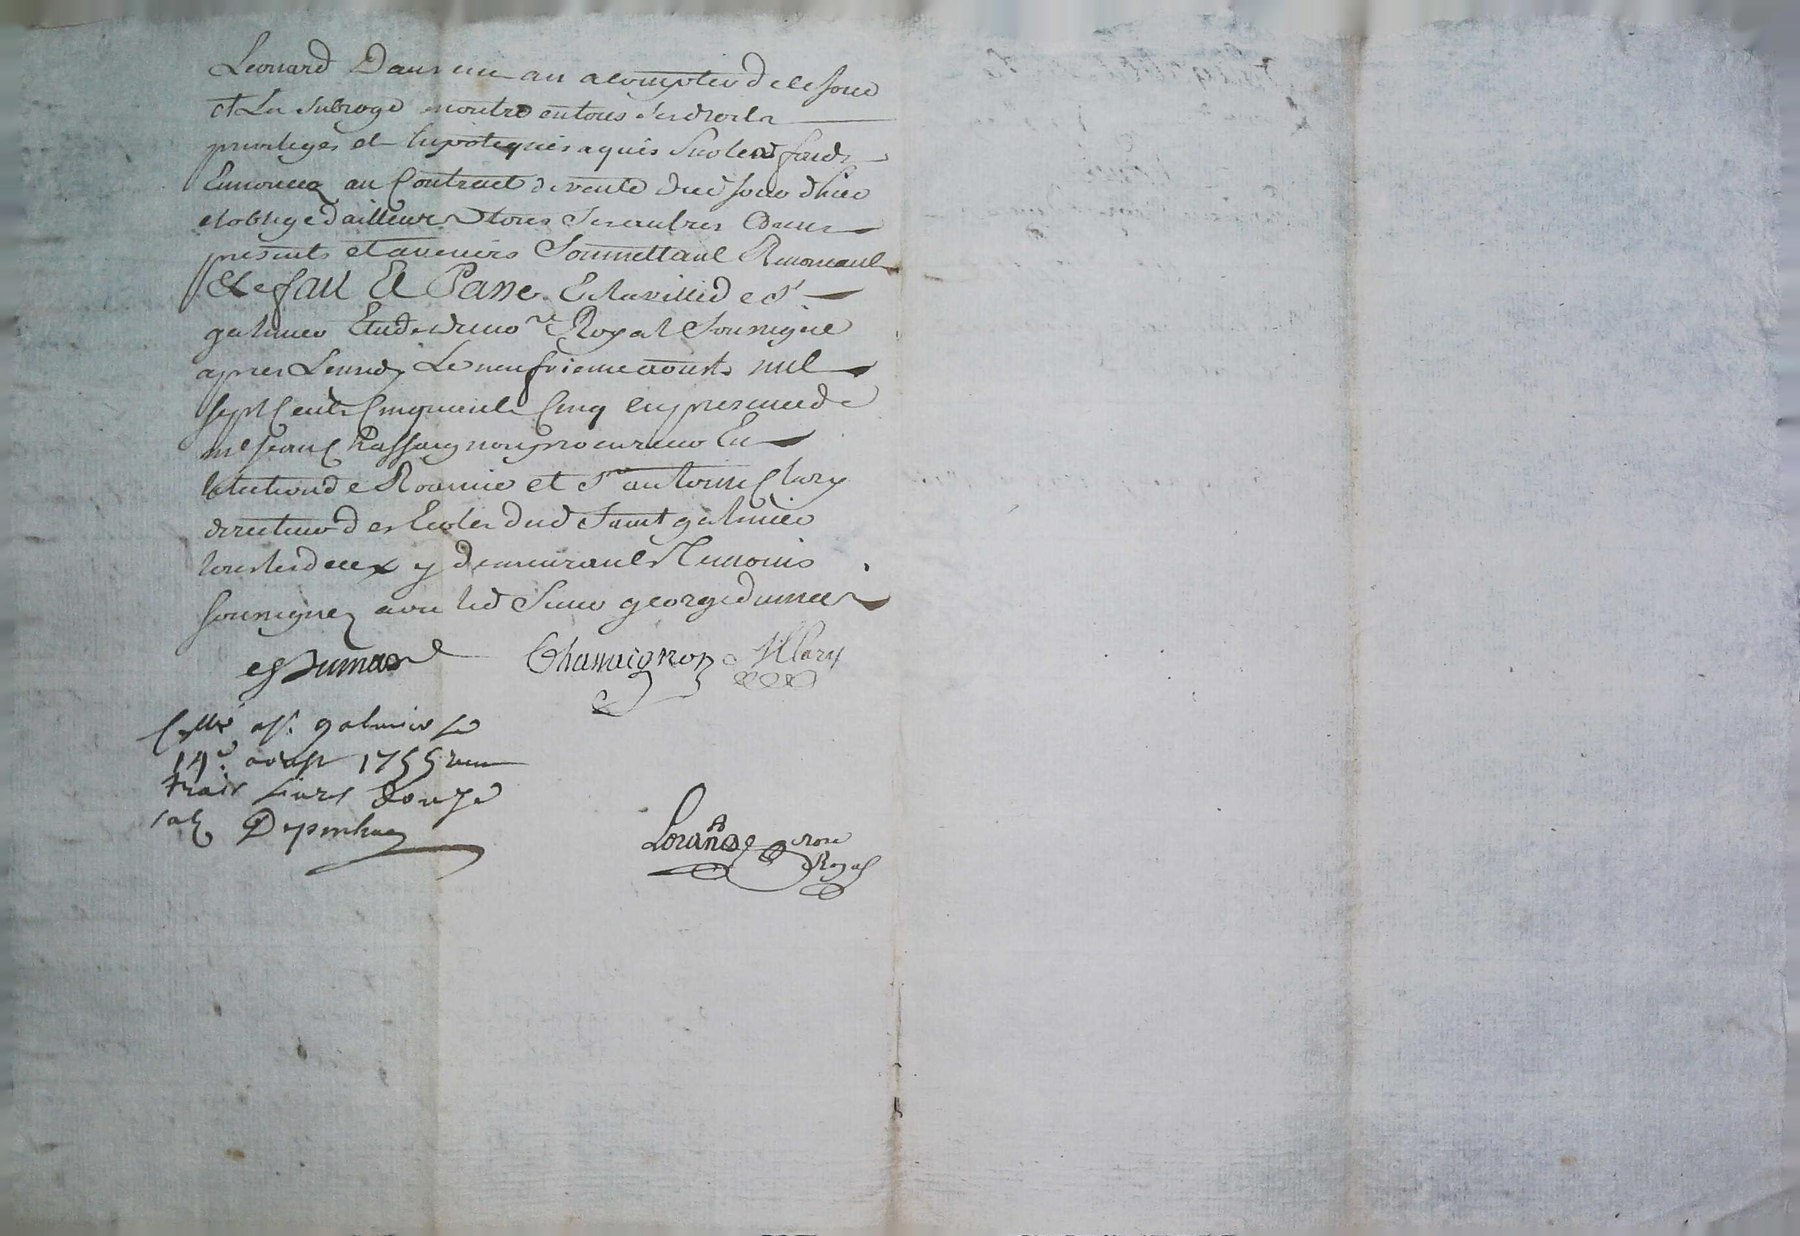 Leonard Dans un an a compter de ce jour
et La subroge en outre en tous ses droits
privileges et hypoteques aquis sur les fonds
Ennoncez au Contract de vente dud jour d'hier
et oblige d'ailleurs tous ses autres biens
presents et avenirs Soumettant Renonceant
Et Ce fait Et Passé En la ville de St
galmier Etude du no.re Royal Soussigné
apres Lemidy Le neufvieme aoust mil
sept Cents Cinquante Cinq en presence de
me Jean Chassaignon procureur En
lelection de Roanne et Sr antoine Clary
directeur des Ecoles dud Saint galmier
tous les deux y demeurants Temoins
soussignez avec led Sieur george dumas
g Dumas Chassaignon A Clary
Cllé a St galmier le
14e aoust 1755 receu
trois livres douze
sols
not.re
Royal